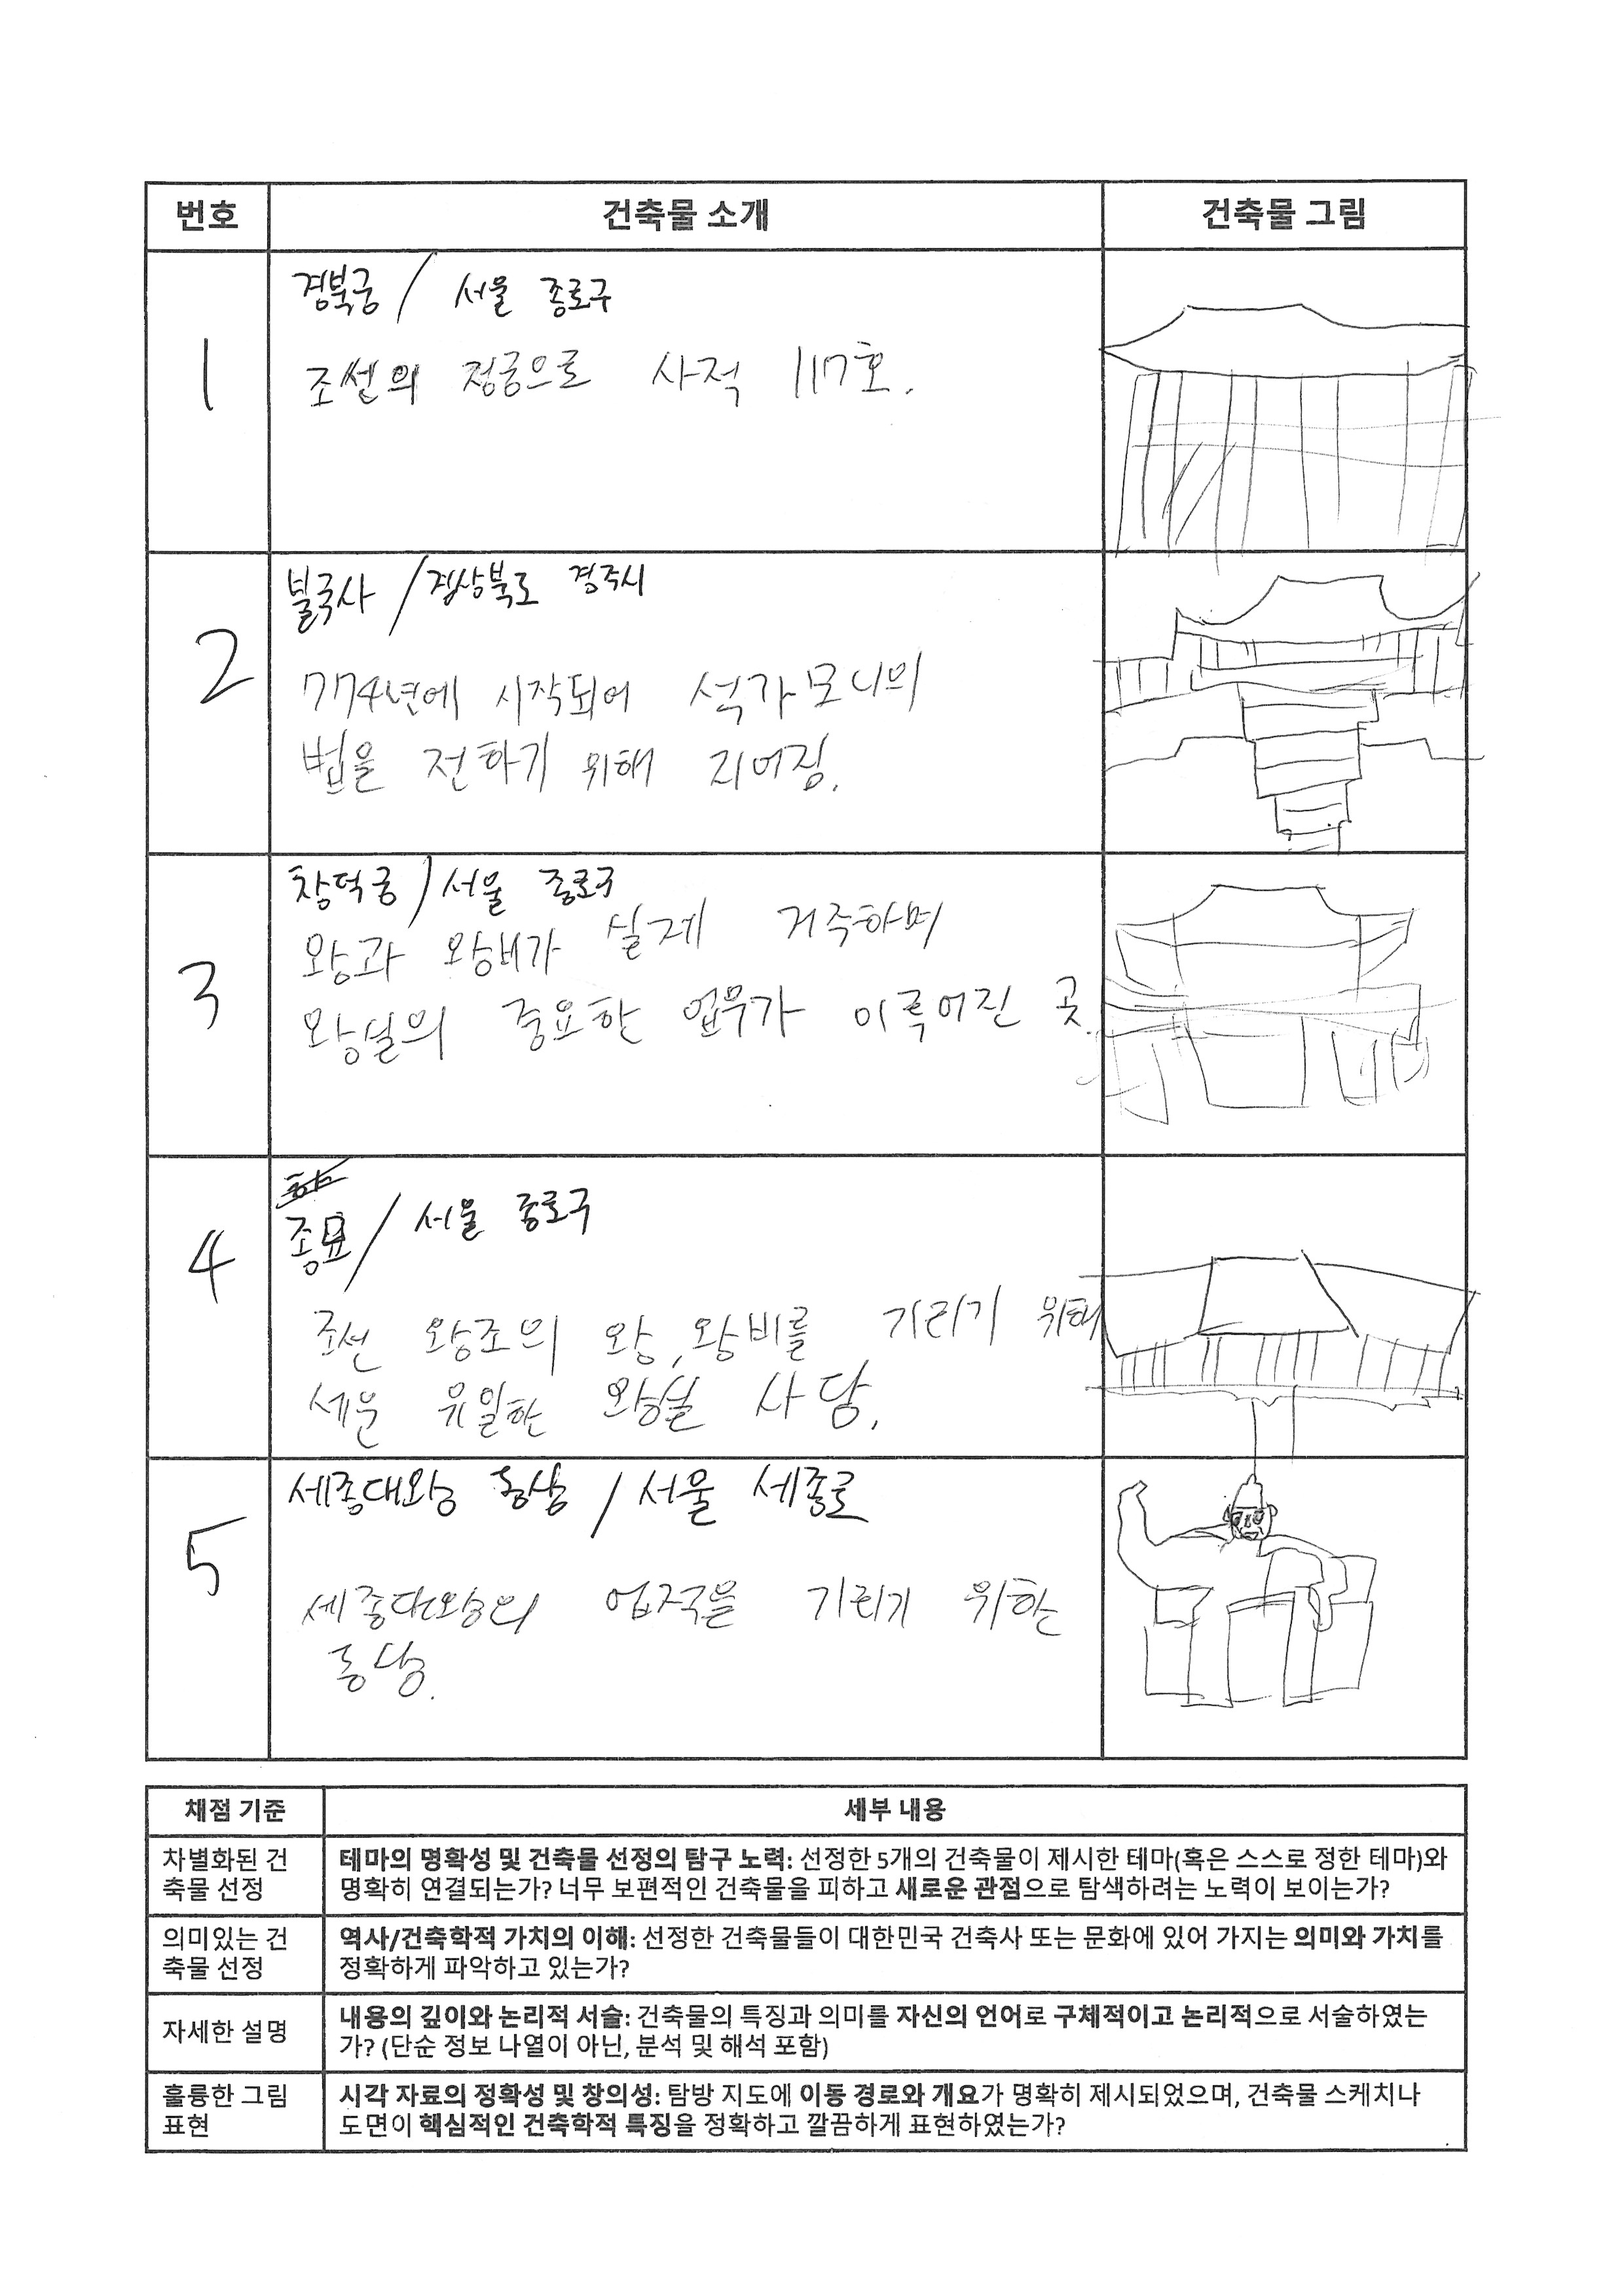 번호 건축물 소개 건축물 그림
1
경복궁 / 서울 종로구
조선의 정궁으로 사적 117호.
2
불국사 / 경상북도 경주시
774년에 시작되어 석가모니의
법을 전하기 위해 지어짐.
3
창덕궁 / 서울 종로구
왕과 왕비가 실제 거주하며
왕실의 중요한 업무가 이루어진 곳.
4
종묘 / 서울 종로구
조선 왕조의 왕, 왕비를 기리기 위해
세운 유일한 왕실 사당.
5
세종대왕 동상 / 서울 세종로
세종대왕의 업적을 기리기 위한
동상.
채점 기준 세부 내용
차별화된 건
축물 선정
테마의 명확성 및 건축물 선정의 탐구 노력: 선정한 5개의 건축물이 제시한 테마(혹은 스스로 정한 테마)와
명확히 연결되는가? 너무 보편적인 건축물을 피하고 새로운 관점으로 탐색하려는 노력이 보이는가?
의미있는 건
축물 선정
역사/건축학적 가치의 이해: 선정한 건축물들이 대한민국 건축사 또는 문화에 있어 가지는 의미와 가치를
정확하게 파악하고 있는가?
자세한 설명
내용의 깊이와 논리적 서술: 건축물의 특징과 의미를 자신의 언어로 구체적이고 논리적으로 서술하였는
가? (단순 정보 나열이 아닌, 분석 및 해석 포함)
훌륭한 그림
표현
시각 자료의 정확성 및 창의성: 탐방 지도에 이동 경로와 개요가 명확히 제시되었으며, 건축물 스케치나
도면이 핵심적인 건축학적 특징을 정확하고 깔끔하게 표현하였는가?